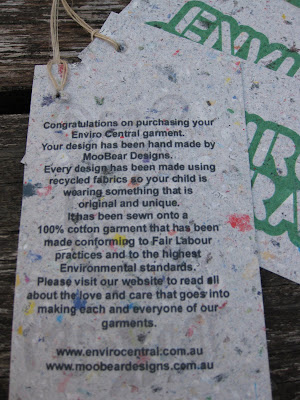 Congratulations on purchasing your
Enviro Central garment.
Your design has been hand made by
MooBear Designs.
Every design has been made using
recycled fabrics so your child is
wearing something that is
original and unique.
It has been sewn onto a
100% cotton garment that has been
made conforming to Fair Labour
practices and to the highest
Environmental standards.
Please visit our website to read all
about the love and care that goes into
making each and everyone of our
garments.
www.envirocentral.com.au
www.moobeardesigns.com.au
ENVI